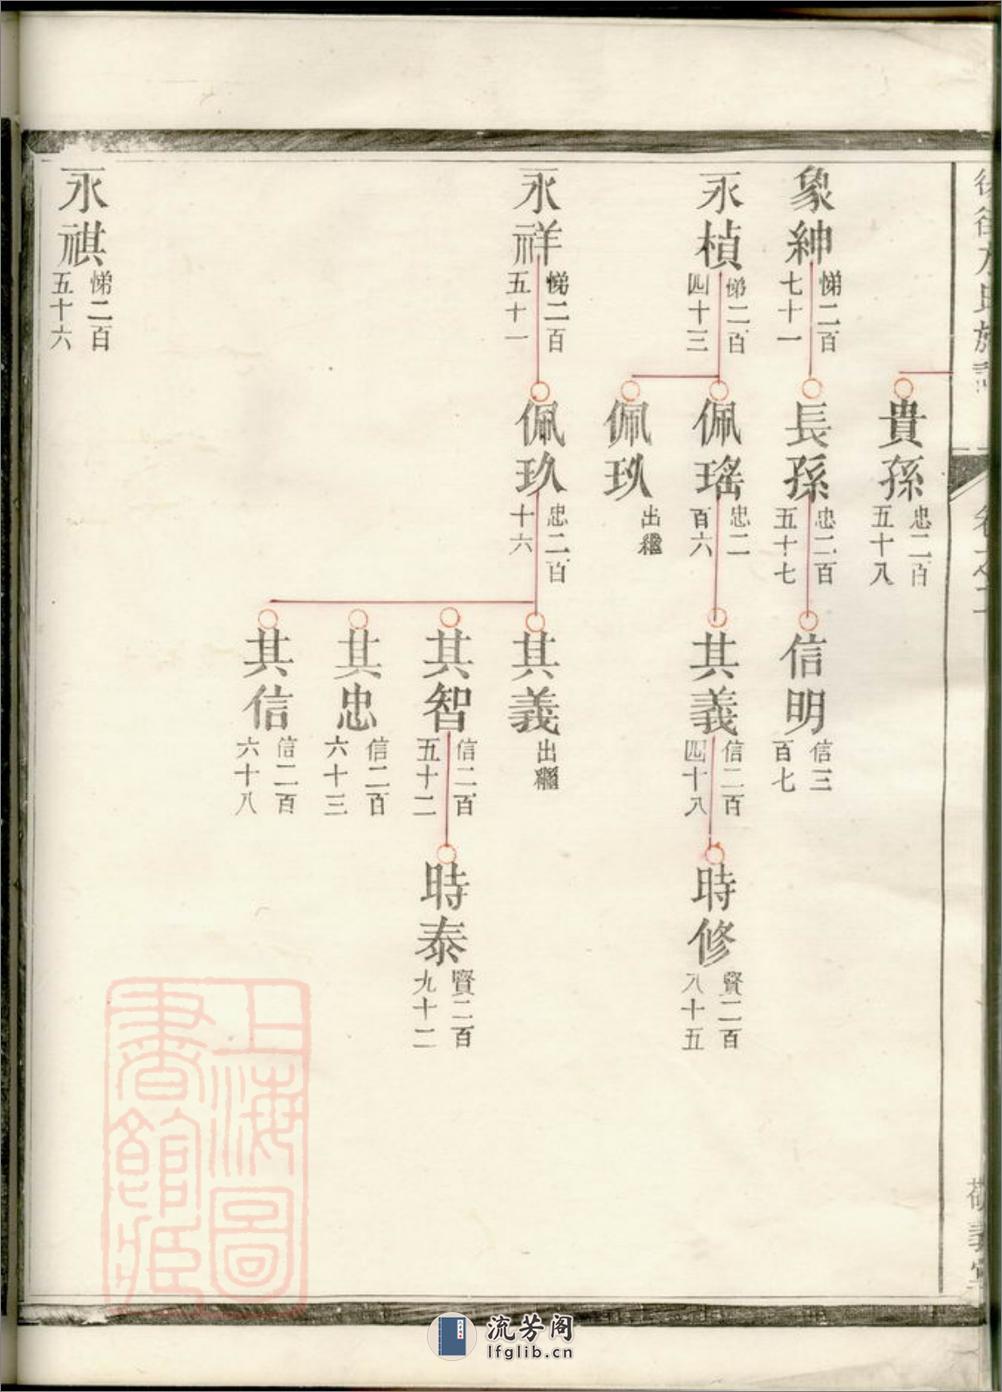 象紳
悌二百
七十一
永楨
悌二百
四十三
永祥
悌二百
五十一
永祺
悌二百
五十六
貴孫
忠二百
五十八
長孫
忠二百
五十七
佩瑤
忠二
百六
佩玖
出繼
佩玖
忠二百
十六
信明
信三
百七
其義
信二百
四十八
其義
出繼
其智
信二百
五十二
其忠
信二百
六十三
其信
信二百
六十八
時修
賢二百
八十五
時泰
賢二百
九十二
敬義堂
上海圖
書館藏
流芳阁
lfglib.cn